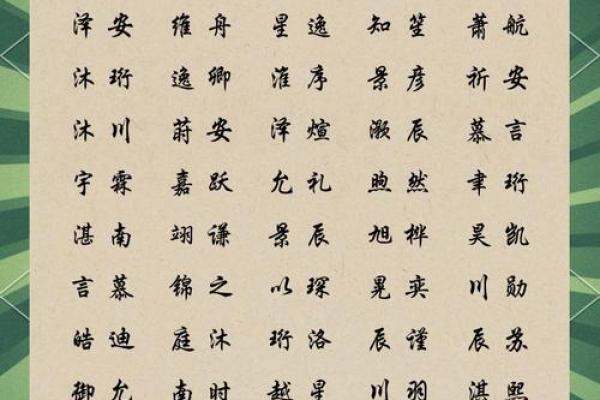 泽安 维舟 星逸 知笙 萧航
沐珩 逸卿 淮序 景彦 祈安
沐川 莳安 泽煊 灏辰 慕言
宇霖 嘉跃 允礼 煦然 聿珩
湛南 翊谦 景辰 旭桦 昊凯
言慕 锦之 以琛 晃奕 川勋
皓迪 庭沐 珩洛 辰谨 辰苏
御允 南时 越星 川羽 湛熙